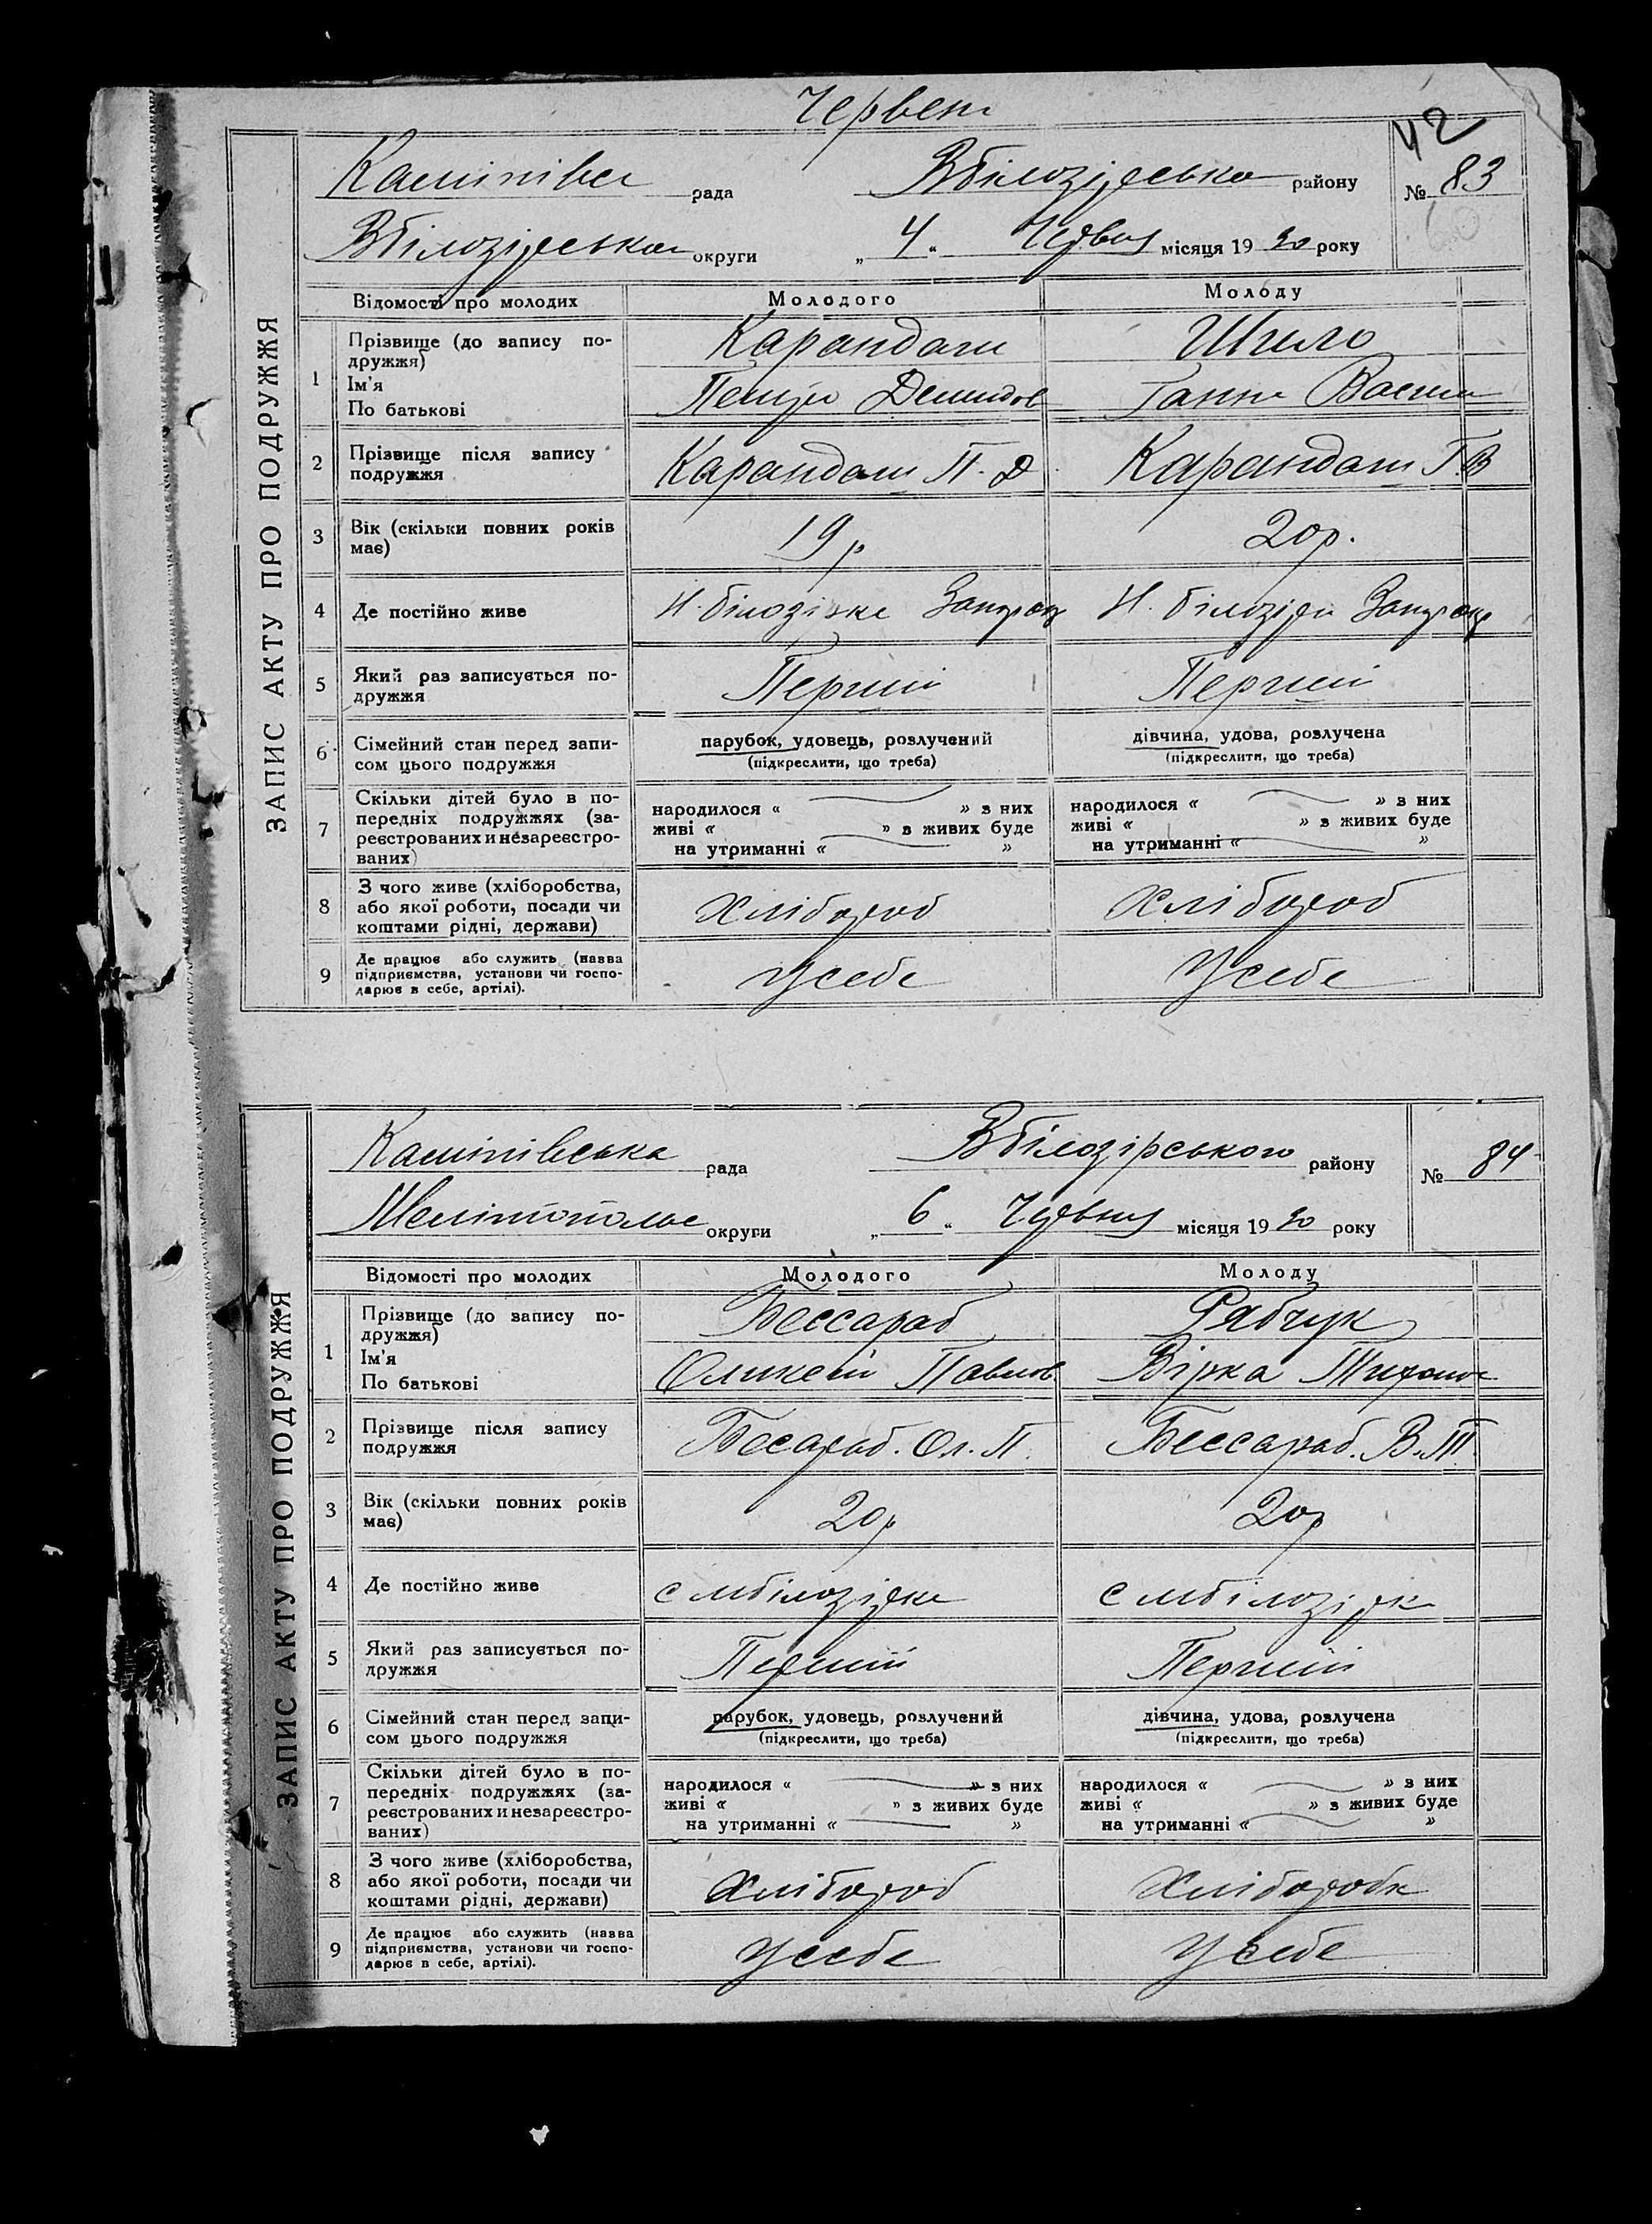 Червень
42
ЗАПИС АКТУ ПРО ПОДРУЖЖЯ
рада Вбілозірська району № 83
Вбілозірська округи „4“ Червня місяця 1930 року
Відомості про молодих Молодого Молоду
1 Прізвище (до запису по-
дружжя) Карандаш Шило
Ім'я
По батькові Петро Демидов Ганна
2 Прізвище після запису
подружжя Карандаш П. Д. Карандаш Г. В
3 Вік (скільки повних років
має) 19 р 20 р.
4 Де постійно живе
5 Який раз записується по-
дружжя Перший Перший
6 Сімейний стан перед запи-
сом цього подружжя
парубок, удовець, розлучений дівчина, удова, розлучена
(підкреслити, що треба) (підкреслити, що треба)
7 Скільки дітей було в по-
передніх подружжях (за-
реєстрованих и незареєстро-
ваних)
народилося « » з них народилося « » з них
живі « » з живих буде живі « » з живих буде
на утриманні « » на утриманні « »
8 З чого живе (хліборобства,
або якої роботи, посади чи
коштами рідні, держави) Хлібороб Хлібороб
9 Де працює або служить (назва
підприємства, установи чи госпо-
дарює в себе, артілі). У себе У себе
ЗАПИС АКТУ ПРО ПОДРУЖЖЯ
рада Вбілозірського району № 84
округи „6“ Червня місяця 1930 року
Відомості про молодих Молодого Молоду
1 Прізвище (до запису по-
дружжя) Бессараб Рябчук
Ім'я
По батькові Павлов Вірка
2 Прізвище після запису
подружжя Бесараб. Ол. П. Бессараб. В. Т.
3 Вік (скільки повних років
має) 20 р 20 р
4 Де постійно живе
5 Який раз записується по-
дружжя Перший Перший
6 Сімейний стан перед запи-
сом цього подружжя
парубок, удовець, розлучений дівчина, удова, розлучена
(підкреслити, що треба) (підкреслити, що треба)
7 Скільки дітей було в по-
передніх подружжях (за-
реєстрованих и незареєстро-
ваних)
народилося « » з них народилося « » з них
живі « » з живих буде живі « » з живих буде
на утриманні « » на утриманні « »
8 З чого живе (хліборобства,
або якої роботи, посади чи
коштами рідні, держави) Хлібороб Хлібороби
9 Де працює або служить (назва
підприємства, установи чи госпо-
дарює в себе, артілі). У себе У себе